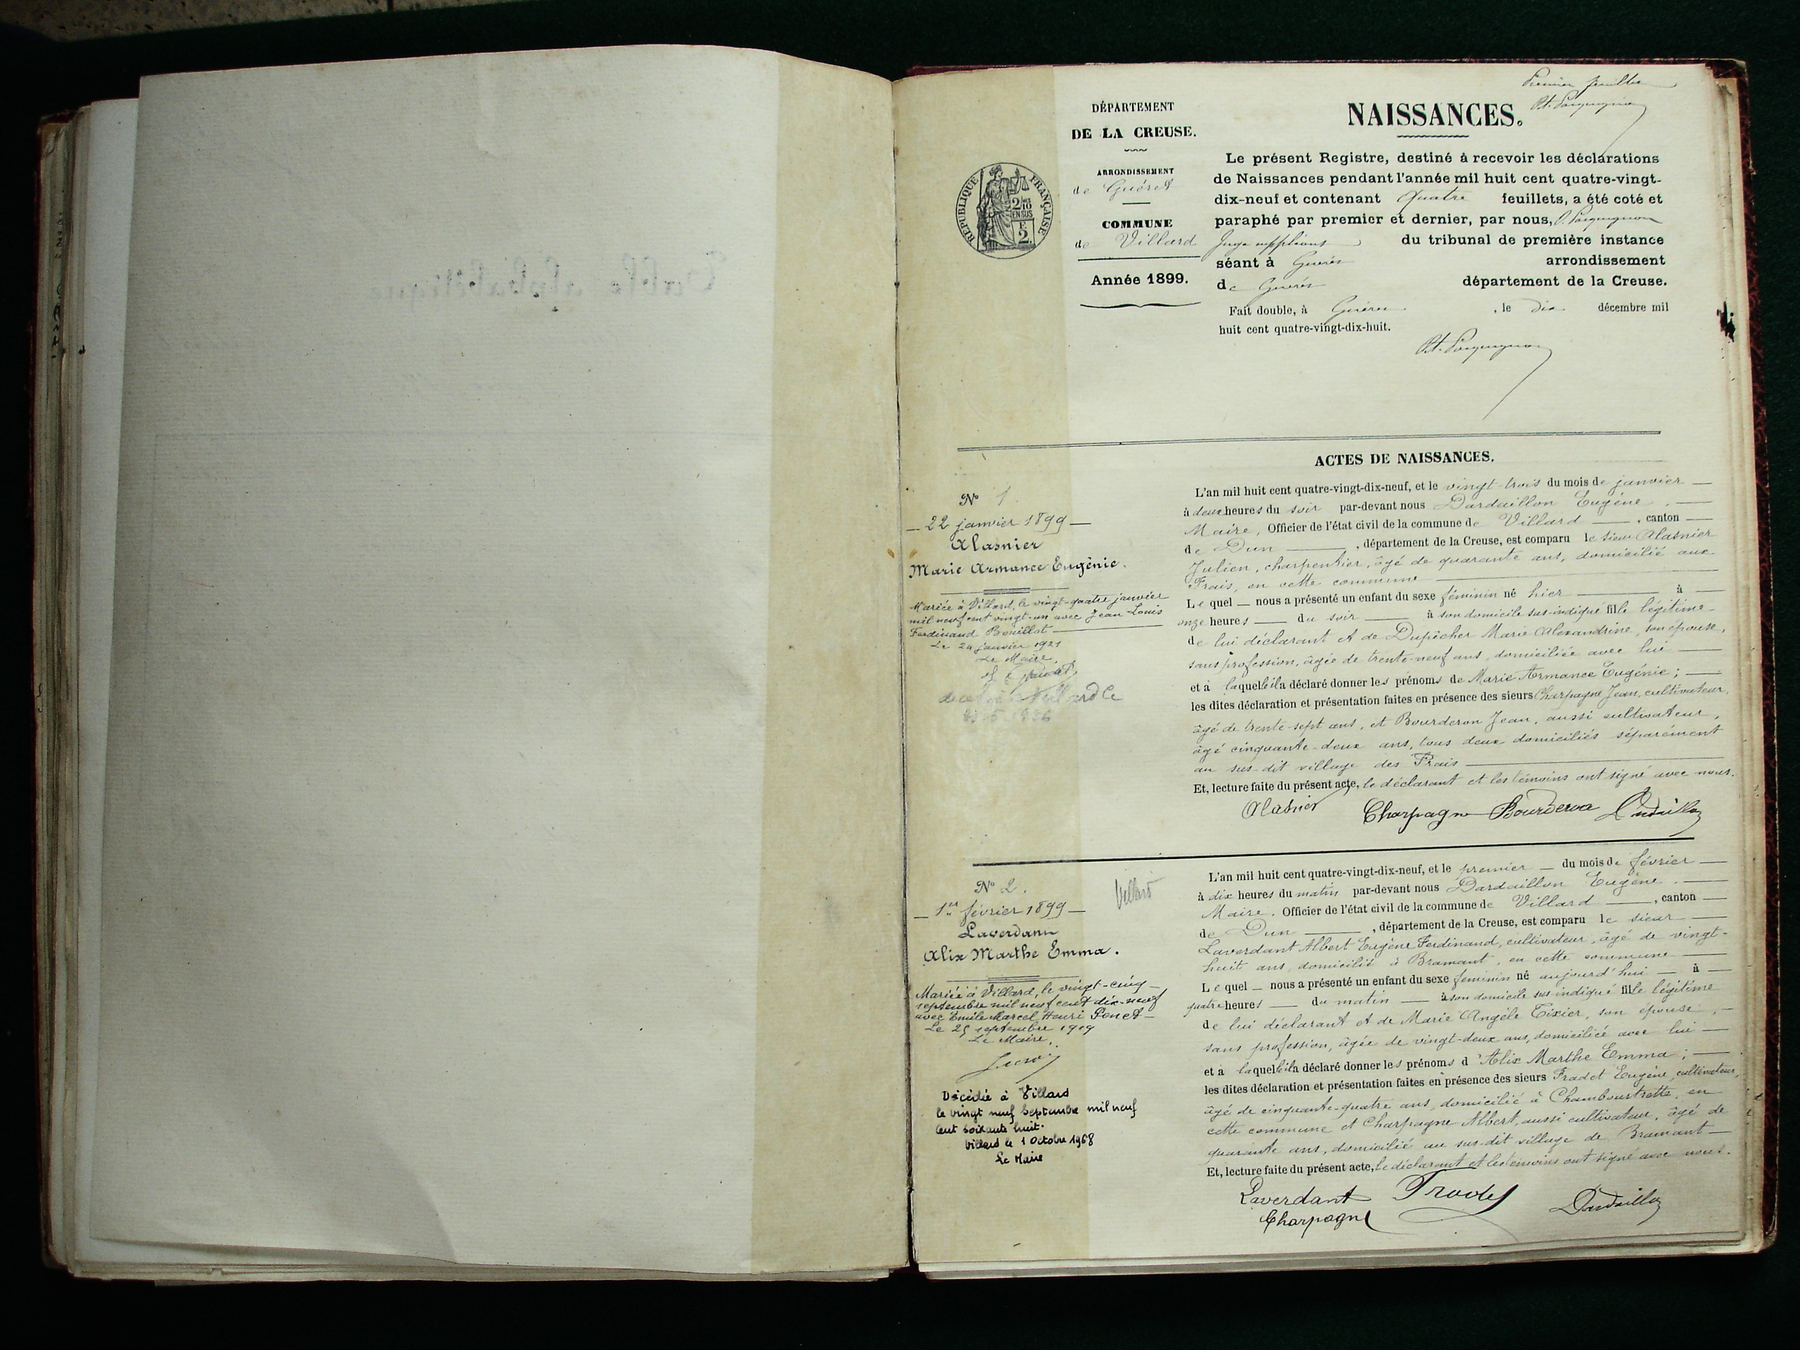 Table alphabétique
Premier feuillet
DÉPARTEMENT
DE LA CREUSE.
ARRONDISSEMENT
de Guéret
COMMUNE
de Villard
Année 1899.
RÉPUBLIQUE FRANÇAISE
2/10
EN SUS
2.
NAISSANCES.
Le présent Registre, destiné à recevoir les déclarations
de Naissances pendant l'année mil huit cent quatre-vingt-
dix-neuf et contenant Quatre feuillets, a été coté et
paraphé par premier et dernier, par nous,
Juge suppléant du tribunal de première instance
séant à Guéret arrondissement
de Guéret département de la Creuse.
Fait double, à Guéret, le dix décembre mil
huit cent quatre-vingt-dix-huit.
ACTES DE NAISSANCES.
N° 1
— 22 janvier 1899 —
Alasnier
Marie Armance Eugénie.
Mariée à Villard, le vingt-quatre janvier
mil neuf cent vingt-un avec Jean-Louis
Ferdinand Bouillot
Le 24 janvier 1921
Le Maire,
décédée à Villard le
L'an mil huit cent quatre-vingt-dix-neuf, et le vingt-trois du mois de janvier —
à deux heures du soir par-devant nous Dardaillon Eugène. —
Maire, Officier de l'état civil de la commune de Villard —, canton —
de Dun —, département de la Creuse, est comparu le sieur Alasnier
Julien, charpentier, âgé de quarante ans, domicilié aux
Frais, en cette commune —
Lequel — nous a présenté un enfant du sexe féminin né hier — à —
onze heures — du soir — à son domicile sus-indiqué fille légitime —
de lui déclarant et de Dupêcher Marie Alexandrine, son épouse,
sans profession, âgée de trente-neuf ans, domiciliée avec lui —
et à laquelle il a déclaré donner les prénoms de Marie Armance Eugénie; —
les dites déclaration et présentation faites en présence des sieurs Charpagne Jean, cultivateur,
âgé de trente-sept ans, et Bourderon Jean, aussi cultivateur,
âgé cinquante-deux ans, tous deux domiciliés séparément
au sus-dit village des Frais —
Et, lecture faite du présent acte, le déclarant et les témoins ont signé avec nous.
Alasnier Charpagne Bourderon Dardaillon
N° 2.
Villard
— 1er février 1899 —
Laverdant
Alix Marthe Emma.
Mariée à Villard, le vingt-cinq
septembre mil neuf cent dix-neuf
avec Emile Marcel Henri Penet —
Le 25 septembre 1919
Le Maire,
Décédée à Villard
le vingt neuf Septembre mil neuf
cent soixante huit.
Villard le 1 Octobre 1968
Le Maire
L'an mil huit cent quatre-vingt-dix-neuf, et le premier — du mois de février —
à dix heures du matin par-devant nous Dardaillon Eugène. —
Maire. Officier de l'état civil de la commune de Villard —, canton —
de Dun —, département de la Creuse, est comparu le sieur —
Laverdant Albert Eugène Ferdinand, cultivateur, âgé de vingt-
huit ans, domicilié à Bramant, en cette commune —
Lequel — nous a présenté un enfant du sexe féminin né aujourd'hui — à —
quatre heures — du matin — à son domicile sus indiqué fille légitime
de lui déclarant et de Marie Angèle Tixier, son épouse, —
sans profession, âgée de vingt-deux ans, domiciliée avec lui —
et à laquelle il a déclaré donner les prénoms d'Alix Marthe Emma; —
les dites déclaration et présentation faites en présence des sieurs Fradet Eugène, cultivateur,
âgé de cinquante-quatre ans, domicilié à Chambourtrette, en
cette commune et Charpagne Albert, aussi cultivateur, âgé de
quarante ans, domicilié au sus-dit village de Bramant —
Et, lecture faite du présent acte, le déclarant et les témoins ont signé avec nous.
Laverdant Fradet Dardaillon
Charpagne